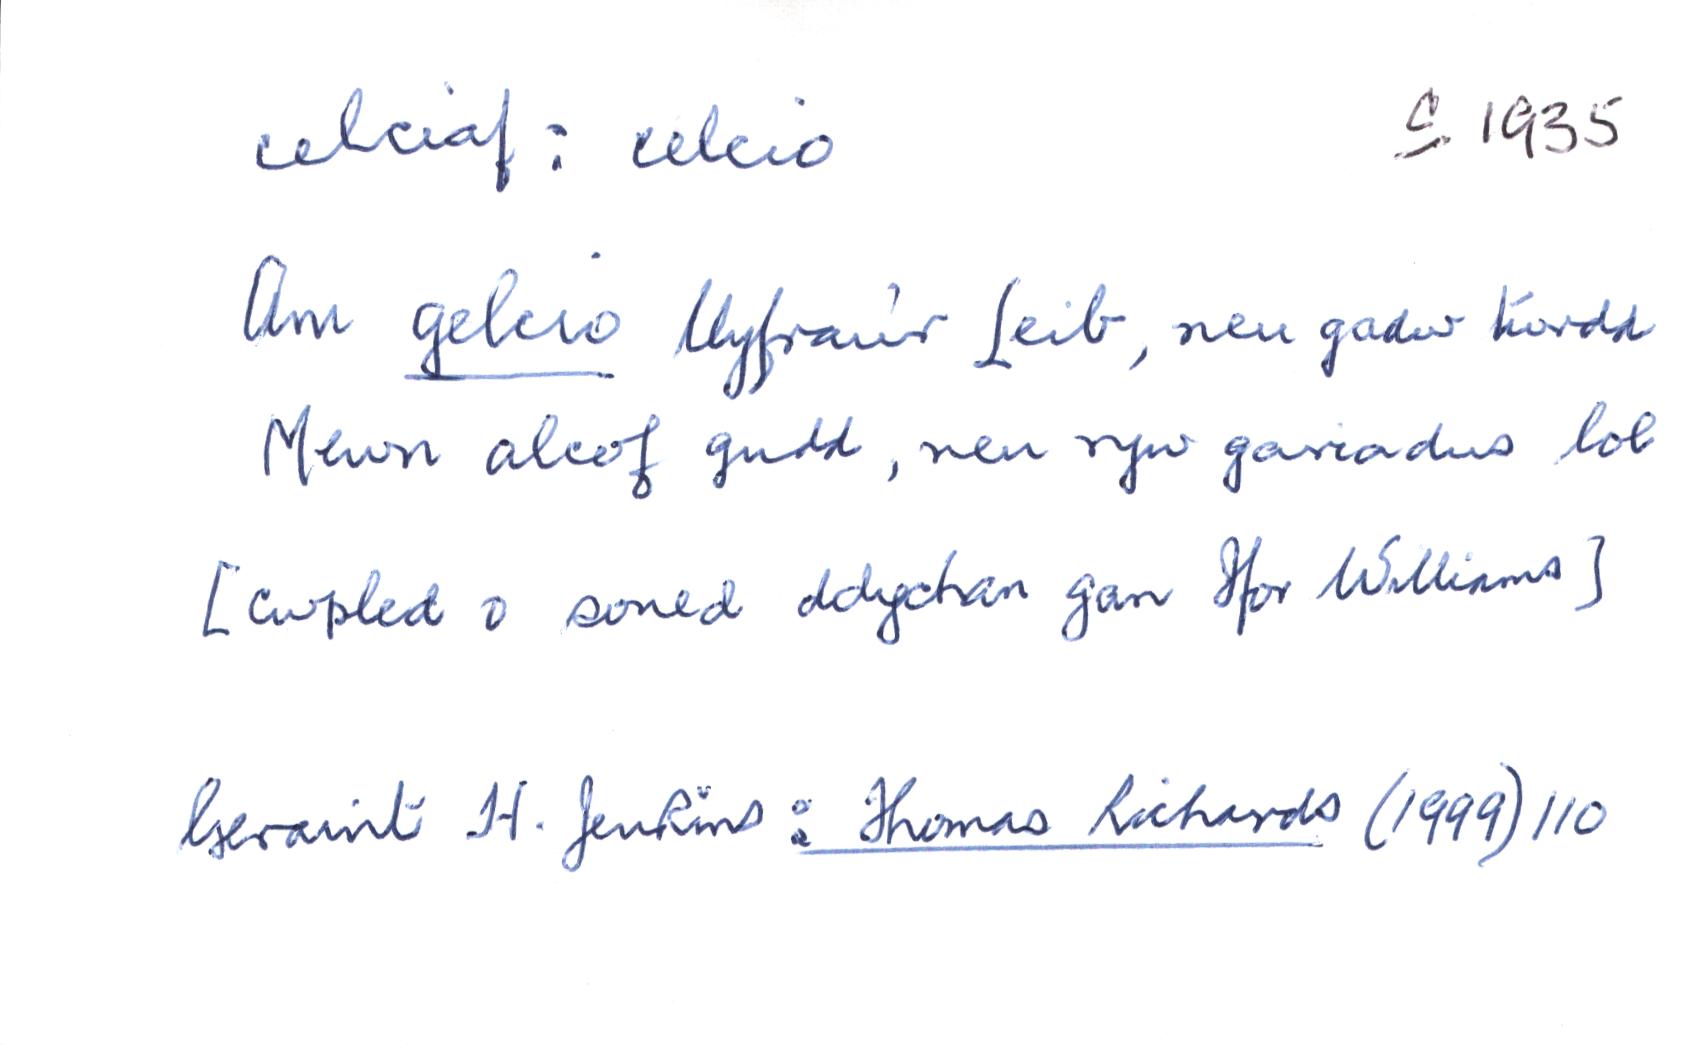 celciaf : celcio c. 1935
Am gelcio llyfrau'r Leib, neu gadw twrdd
Mewn alcof gudd, neu ryw gariadus lob
[cwpled o soned ddychan gan Ifor Williams]
Geraint H. Jenkins : Thomas Richards (1999) 110